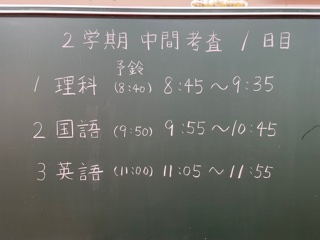 2学期 中間考査 1日目
予鈴
1 理科 (8:40) 8:45～9:35
2 国語 (9:50) 9:55～10:45
3 英語 (11:00) 11:05～11:55